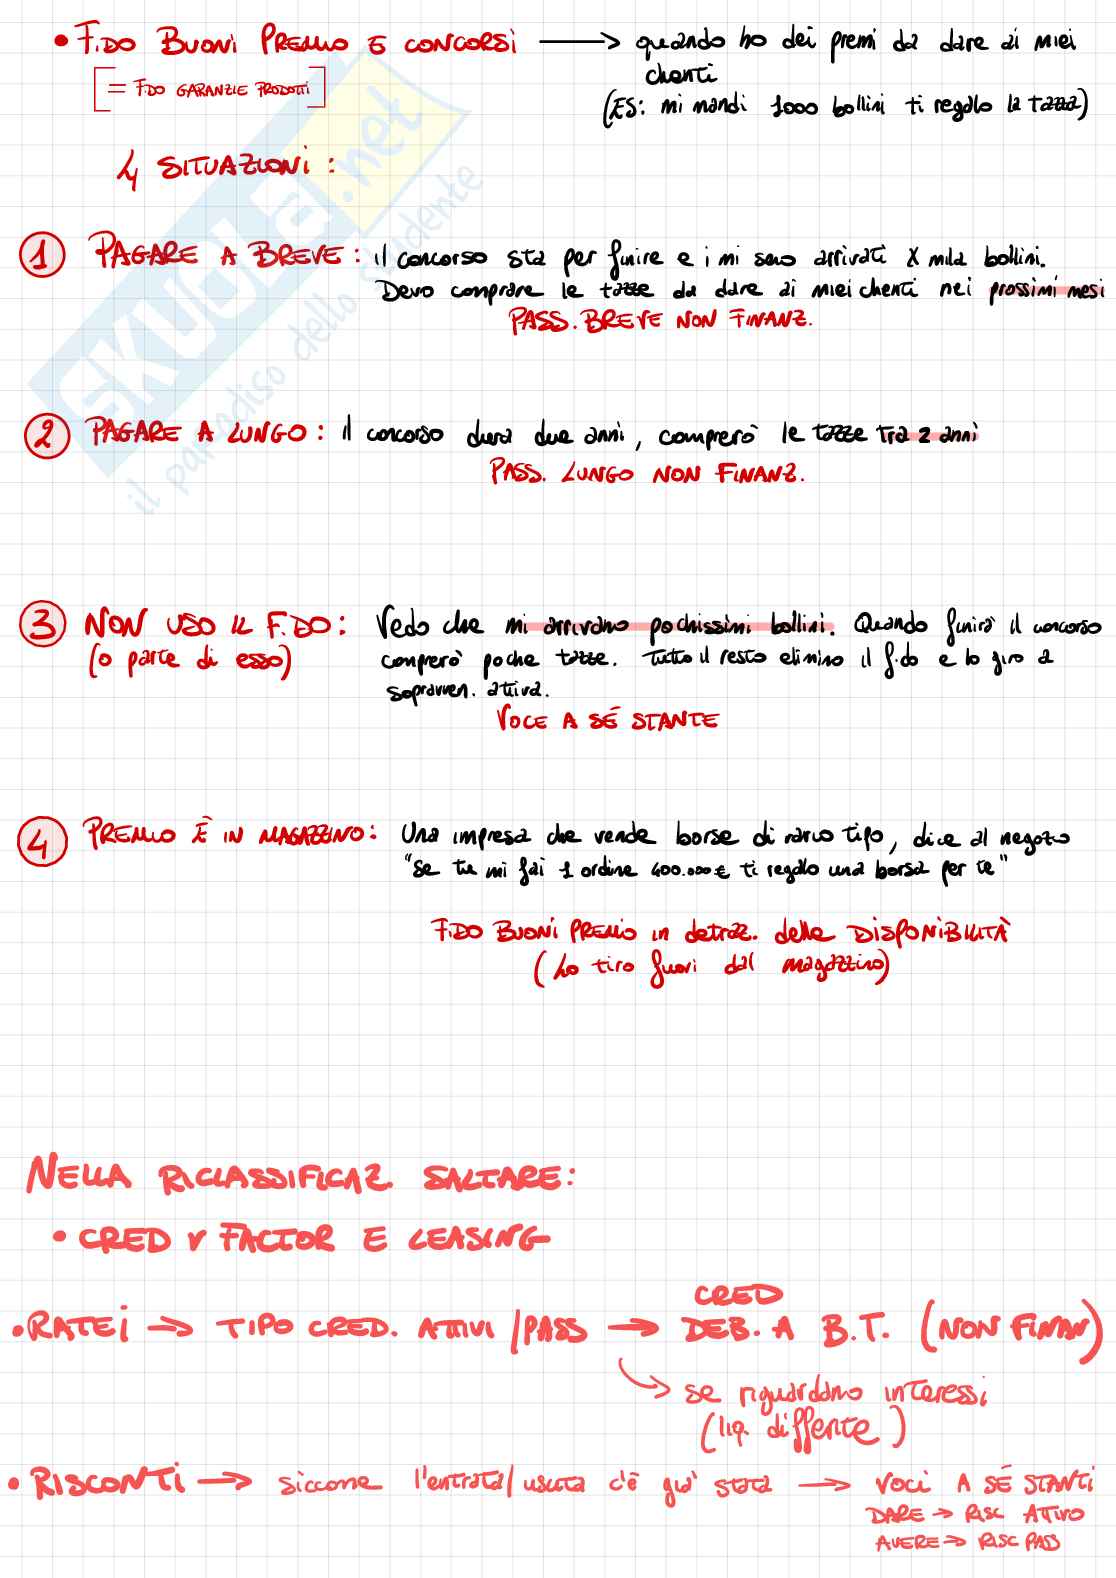 • F.DO BUONI PREMIO E CONCORSI → quando ho dei premi da dare ai miei
clienti
[= F.DO GARANZIE PRODOTTI]
(ES: mi mandi 1000 bollini ti regalo la tazza)
4 SITUAZIONI:
1 PAGARE A BREVE: il concorso sta per finire e i mi sono arrivati X mila bollini.
Devo comprare le tazze da dare ai miei clienti nei prossimi mesi
PASS. BREVE NON FINANZ.
2 PAGARE A LUNGO: il concorso dura due anni, comprerò le tazze tra 2 anni
PASS. LUNGO NON FINANZ.
3 NON USO IL F.DO: Vedo che mi arrivano pochissimi bollini. Quando finirà il concorso
(o parte di esso) comprerò poche tazze. Tutto il resto elimino il f.do e lo giro a
sopravven. attiva.
VOCE A SÉ STANTE
4 PREMIO È IN MAGAZZINO: Una impresa che vende borse di vario tipo, dice al negozio
"se tu mi fai 1 ordine 400.000 € ti regalo una borsa per te"
F.DO BUONI PREMIO in detraz. delle DISPONIBILITÀ
(Lo tiro fuori dal magazzino)
NELLA RICLASSIFICAZ. SALTARE:
• CRED V FACTOR E LEASING
CRED
• RATEI → TIPO CRED. ATTIVI/PASS → DEB. A B.T. (NON FINAN)
→ se riguardano interessi
(liq. differite)
• RISCONTI → siccome l'entrata/uscita c'è già stata → VOCI A SÉ STANTI
DARE → RISC ATTIVO
AVERE → RISC PASS
SKUOLA.net
il paradiso dello studente